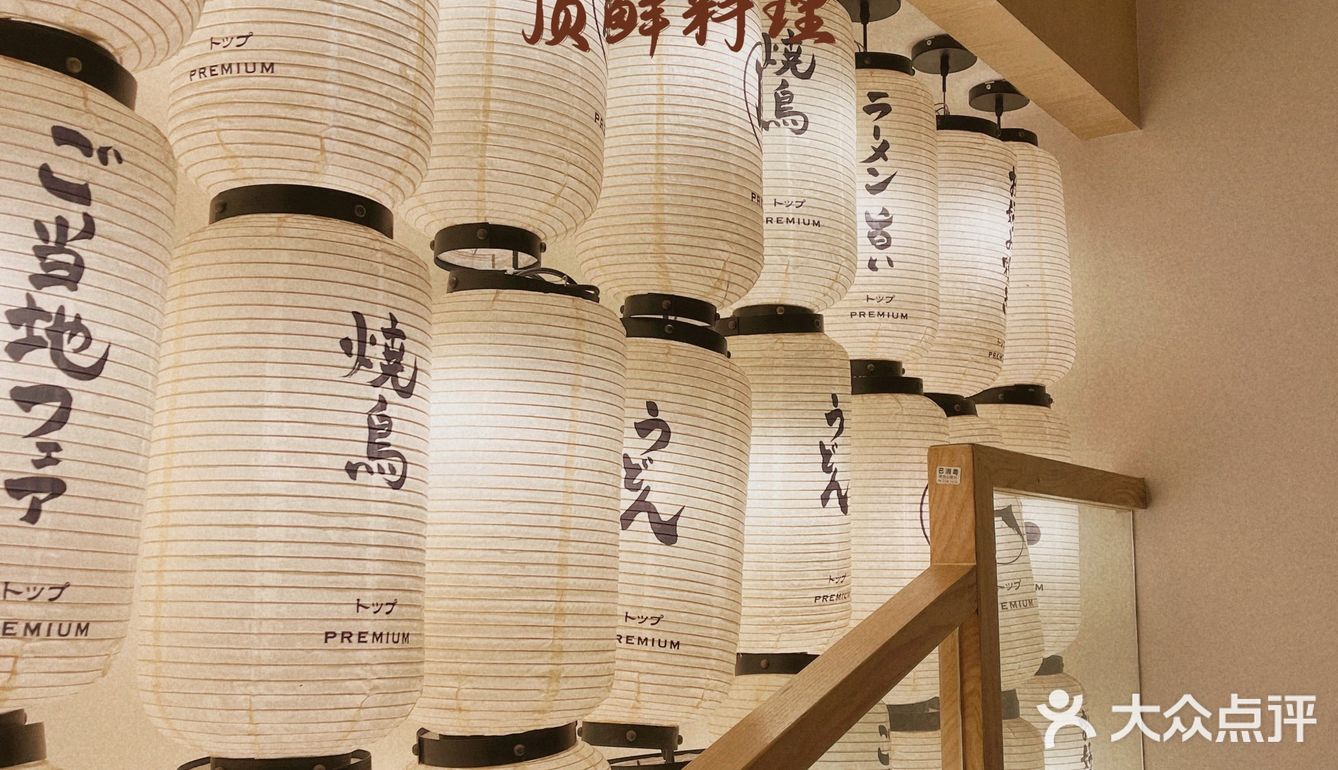 顶鲜料理
トップ
PREMIUM
ご当地フェア
トップ
EMIUM
焼鳥
トップ
PREMIUM
焼鳥
トップ
REMIUM
うどん
トップ
REMIUM
うどん
トップ
PREMIUM
ラーメン旨い
トップ
PREMIUM
已消毒
大众点评